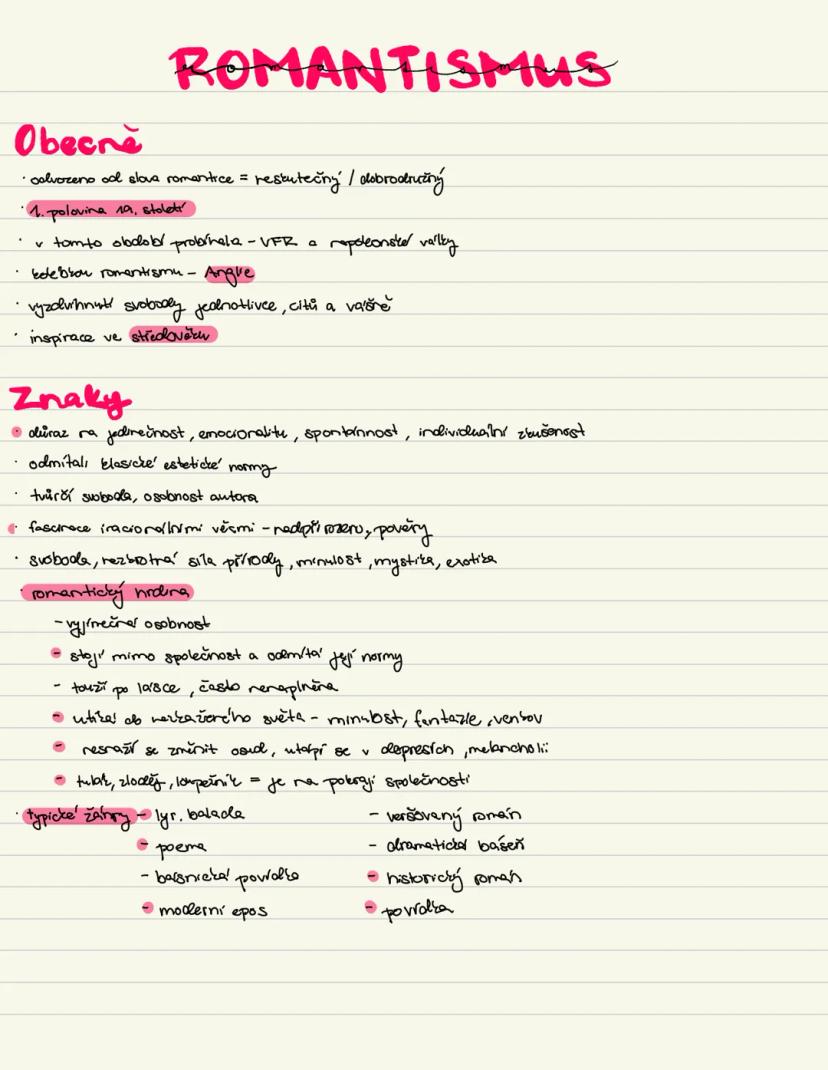 ROMANTISMUS
romantismus
Obecně
· odvozeno od slova romantice = neskutečný / dobrodružný
· 1. polovina 19. století
· v tomto období probíhala - VFR a napoleonské války
· kolébkou romantismu - Anglie
· vyzdvihnutí svobody jednotlivce, citů a vášně
· inspirace ve středověku
Znaky
· důraz na jedinečnost, emocionalitu, spontánnost, individuální zkušenost
· odmítali klasické estetické normy
· tvůrčí svoboda, osobnost autora
· fascinace iracionálními věcmi - nadpřirozeno, pověry
· svoboda, nezkrotná síla přírody, minulost, mystika, exotika
· romantický hrdina
- vyjímečná osobnost
- stojí mimo společnost a odmítá její normy
- touží po lásce, často nenaplněna
- utíká do nezkaženého světa - minulost, fantazie, venkov
- nesnaží se změnit osud, utápí se v depresích, melancholii
- tulák, zloděj, loupežník = je na pokraji společnosti
· typické žánry - lyr. balada - veršovaný román
- poema - dramatická báseň
- básnická povídka - historický román
- moderní epos - povídka